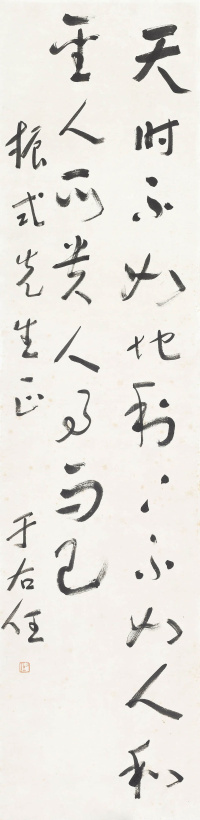 天时不如地利〻不如人和
圣人所贵人事而已
振式先生正
于右任